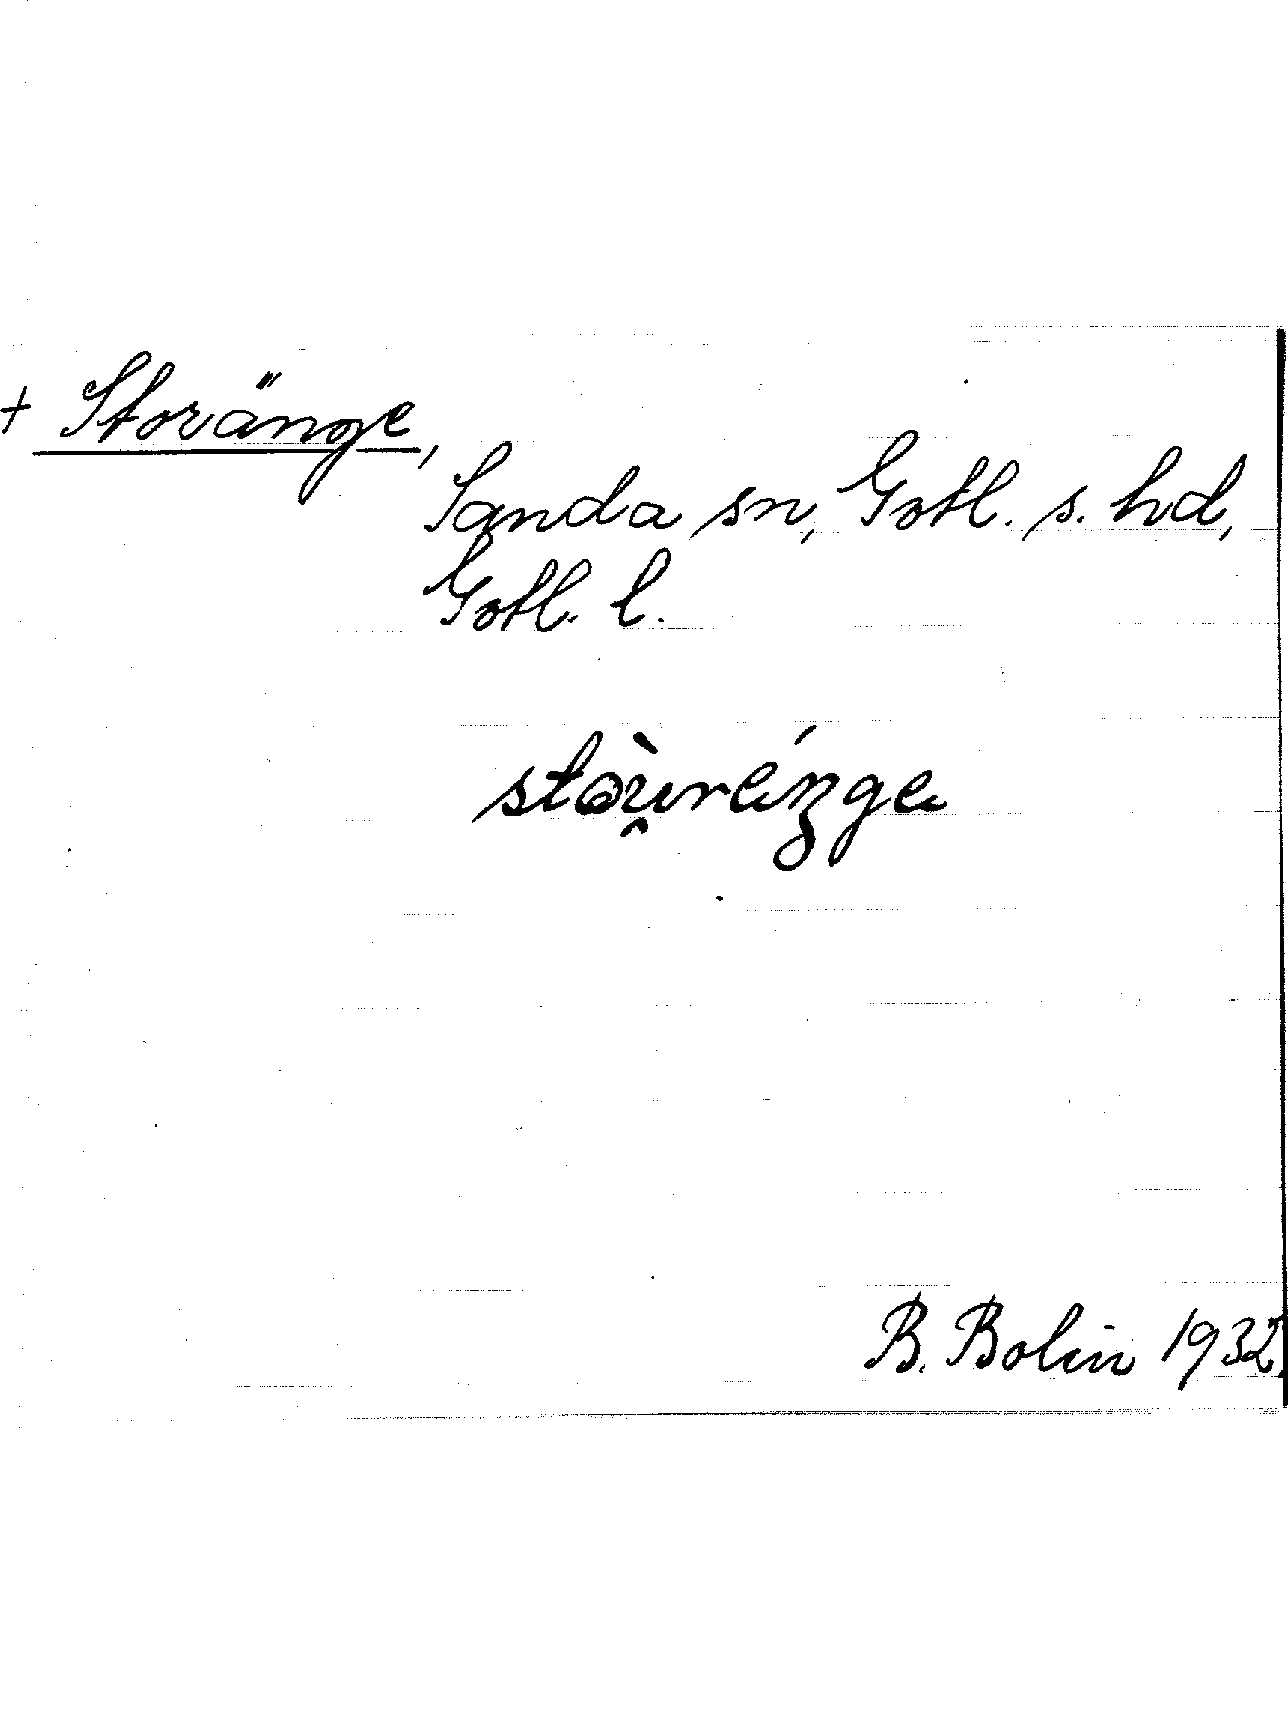 + Storänge,
Sanda sn, Gotl. s. hd,
Gotl. l.
B. Bolin 1932.